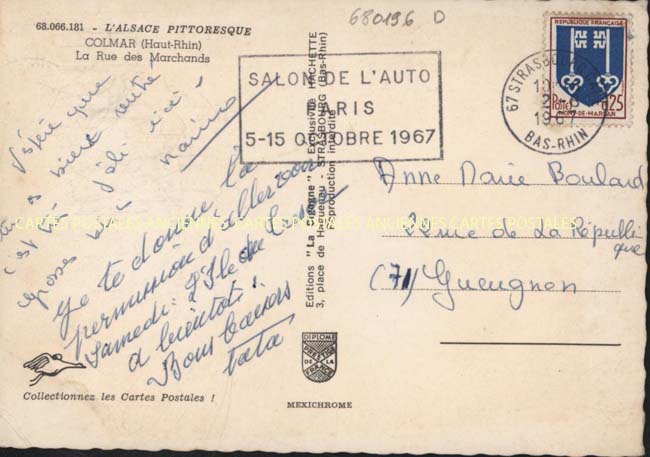 68.066.181 - L'ALSACE PITTORESQUE
COLMAR (Haut-Rhin)
La Rue des Marchands
680196 D
SALON DE L'AUTO
PARIS
5-15 OCTOBRE 1967
67 STRASBOURG
1967
BAS-RHIN
REPUBLIQUE FRANÇAISE
Postes 0,25
MONT-DE-MARSAN
que
bien
joli ici!
c'est
Je te donne la
permission d'aller voir
samedi: L'Ile au
à bientôt!
Bons baisers
tata
Editions "La Cigogne" - Exclusivité HACHETTE
3, place de Haguenau - STRASBOURG (Bas-Rhin)
Reproduction interdite
Anne Marie Boulard
Rue de La République
(71) Gueugnon
CARTES POSTALES ANCIENNES CARTES POSTALES ANCIENNES CARTES POSTALES
DIPLOME
PRESTIGE
DE LA
FRANCE
Collectionnez les Cartes Postales !
MEXICHROME